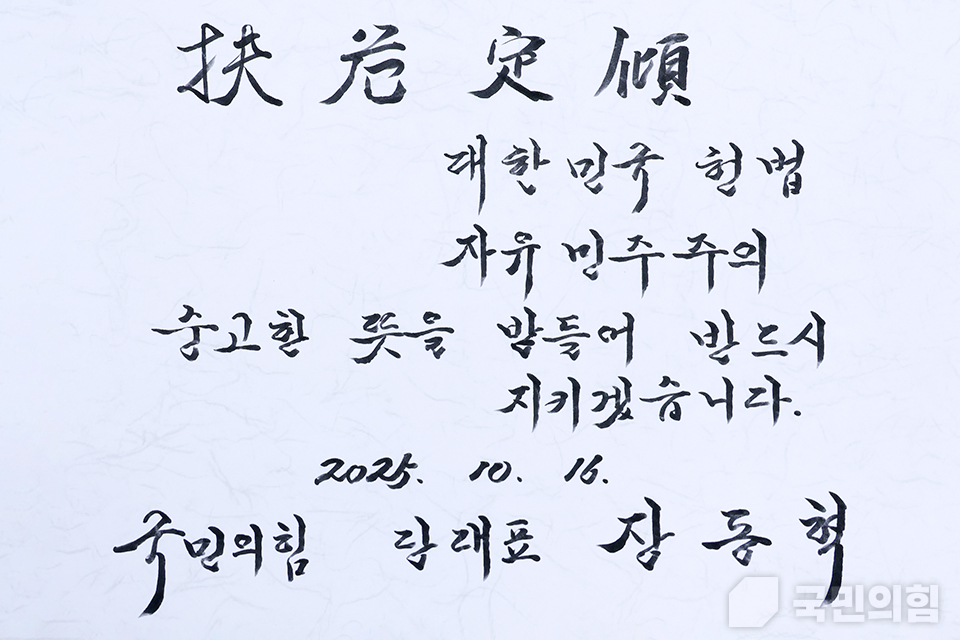 扶危定傾
대한민국 헌법
자유 민주주의
숭고한 뜻을 받들어 반드시
지키겠습니다.
2025. 10. 16.
국민의힘 당대표 장동혁
국민의힘